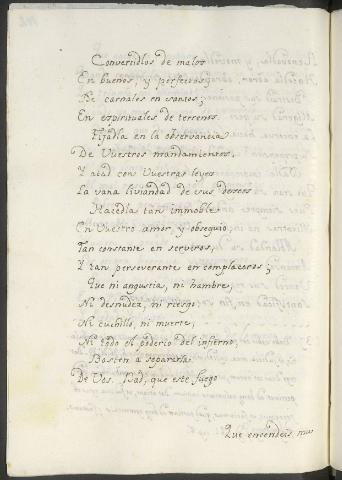 Convertidlos de malos
En buenos, y perfectos;
De carnales en santos;
En espirituales de terrenos.
Fijadla en la observancia
De Vuestros mandamientos,
Y atad con Vuestras leyes
La vana liviandad de sus deseos
Hacedla tan immoble
En Vuestro amor, y obsequio,
Tan constante en serviros,
Y tan perseverante en complaceros;
Que ni angustia, ni hambre,
Ni desnudez, ni riesgo
Ni cuchillo, ni muerte,
Ni todo el poderio del infierno,
Basten a separarla
De Vos. Dad, que este fuego
Que encendeis